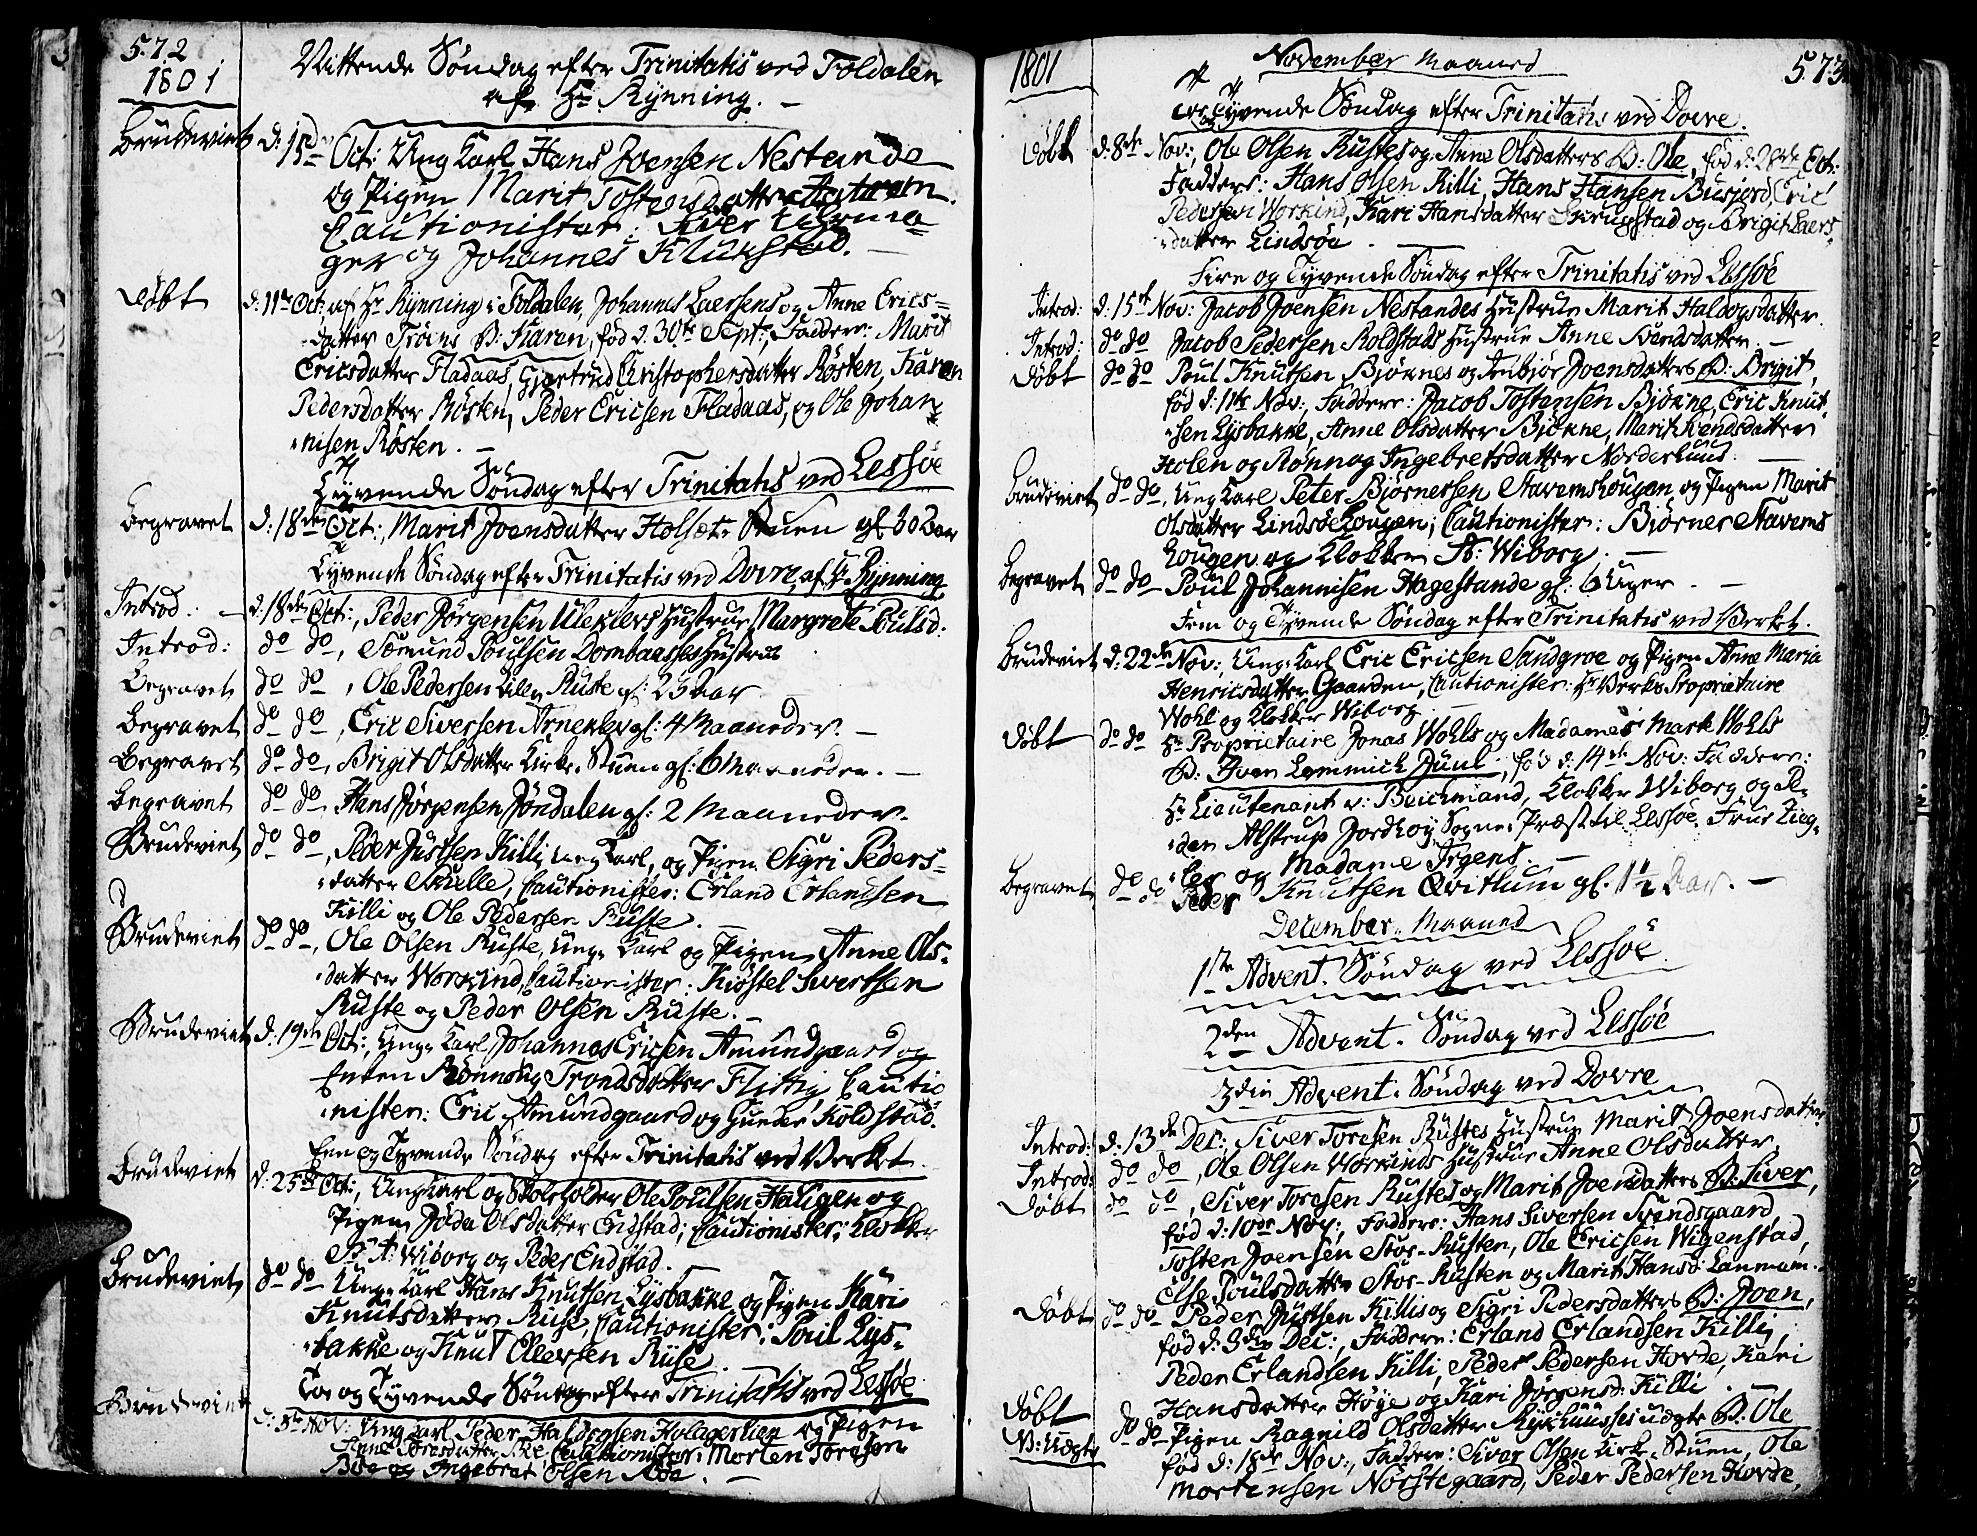 572
1801
Nittende Söndag efter Trinitatis ved Foldalen
af Hr Rynning.
Brudeviet d: 15de Oct: Ung Karl Hans Joensen Nestande
og Pigen Marit Tostensdatter
Cautionister: Siver
ger og Johannes Klukstad.
Döbt d: 11te Oct: af Hr Rynning i Foldalen, Johannes Laersens og Anne Erics-
datter Tröens B: Karen, föd d. 30te Sept:, Faddere: Marit
Ericsdatter Fladaas, Gjertrud Christophersdatter Rösten, Karen
Pedersdatter Rösten, Peder Ericsen Fladaas, og Ole Johan-
nisen Rösten.
Tyvende Söndag efter Trinitatis ved Lessöe
Begravet d: 18de Oct:, Marit Joensdatter Holset-Stuen gl. 60 Aar
Tyvende Söndag efter Trinitatis ved Dovre, af Hr Rynning
Introd: d: 18de Oct:, Peder Jörgensen Uleklevs Hustrue Margrete Poulsd:
Introd: do do, Sörmund Poulsen Dombaasses Hustrue
Begravet do do, Ole Pedersen Lille Ruste gl: 23 Aar
Begravet do do, Eric Siversen Arnekler gl: 4 Maaneder.
Begravet do do, Brigit Olsdatter Kirke-Stuen gl: 6 Maaneder.
Begravet do do, Hans Jörgensen Jöndalen gl: 2 Maaneder.
Brudeviet do do, Peder Justsen Killi, Ung Karl, og Pigen Sigri Peders-
datter Skulle, Cautionister: Erland Erlandsen
Killi og Ole Pedersen Ruste.
Brudeviet do do, Ole Olsen Ruste, Ung Karl og Pigen Anne Ols-
datter Workind, Cautionister: Kiöstel Sivertsen
Ruste og Peder Olsen Ruste.
Brudeviet d: 19de Oct:, Ung Karl Johannes Ericsen Amundgaard og
Enken Rönnoug Trondsdatter Flittig, Cautio
nister: Eric Amundgaard og Gunder Koldstad.
Een og Tyvende Söndag efter Trinitatis ved Verket
Brudeviet d: 25de Oct:, Ung Karl og Skoleholder Ole Poulsen Haugen og
Pigen Jöda Olsdatter Endstad; Cautionister: Klokker
Sr A: Wiborg og Peder Endstad.
Brudeviet do do Ung Karl Hans Knutsen Lysbakke og Pigen Kari
Knutsdatter Ruse, Cautionister: Poul Lys-
bakke og Knut Olersen Ruse
To og Tyvende Söndag efter Trinitatis ved Lessöe.
Brudeviet d: 1ste Nov: Ung Karl Peder Haldogsen Holagerlien og Pigen
Anne Toresdatter Böe, Cautionister: Morten Toresen
Böe og Ingebret Olsen Böe.
1801
November Maaned
573
Tre og Tyvende Söndag efter Trinitatis ved Dovre.
Döbt d: 8de Nov:, Ole Olsen Rustes og Anne Olsdatters B: Ole, föd d: 28de Oct:
Faddere: Hans Olsen Killi, Hans Hansen Busjord, Eric
Pedersen Workind, Kari Hansdatter Skrugstad og Brigit Laers-
datter Lindsöe.
Fire og Tyvende Söndag efter Trinitatis ved Lessöe
Introd: d: 15de Nov: Jacob Joensen Nestandes Hustrue Marit Haldogsdatter.
Introd: do do Jacob Pedersen Koldstads Hustrue Anne Svendsdatter.
Döbt do do Poul Knutsen Björnes og Inbjör Joensdatters B: Brigit,
föd d: 11te Nov:, Faddere: Jacob Tostensen Björkne, Eric Knut-
sen Lysbakke, Anne Olsdatter Björkne, Marit Svendsdatter
Holen og Rönnog Ingebretsdatter Norderhuus.
Brudeviet do do, Ung Karl Peter Björnersen Stavemshougen, og Pigen Marit
Olsdatter Lindsöehougen; Cautionister: Björner Stavems
hougen og Klokker A: Wiborg.
Begravet do do Poul Johannisen Hagestande gl: 6 Uger
Fem og Tyvende Söndag efter Trinitatis ved Verket.
Brudeviet d: 22de Nov: Ung Karl Eric Ericsen Sandgroe og Pigen Anne Maria
Henricsdatter Gaarden, Cautionister: Hr Verks Proprietaire
Wohl og Klokker Wiborg.
Döbt do do Hr Proprietaire Jonas Wohls og Madames Mark Wohls
B: Iven Lemmick Juul, föd d: 14de Nov: Faddere:
Hr Lieutenant v: Beichmand, Klokker Wiborg og Pe-
der Alstrup Jordhöy, Sogne-Præst til Lessöe. Frue Zieg-
ler og Madame Irgens.
Begravet do do Peder Knutsen Qvitlum gl. 1 1/2 Aar.
December Maaned
1ste Advent-Söndag ved Lessöe
2den Advent-Söndag ved Lessöe
3die Advent-Söndag ved Dovre
Introd: d: 13de Dec: Siver Toresen Rustes Hustrue Marit Joensdatter
Introd: do do, Ole Olsen Workinds Hustrue Anne Olsdatter
Döbt do do, Siver Toresen Rustes og Marit Joensdatters B: Siver,
föd d: 10de Nov:, Faddere: Hans Siversen Svendsgaard,
Tosten Joensen Stor-Rusten, Ole Ericsen Wigenstad,
Else Poulsdatter Stor-Rusten og Marit Hansd: Lanmæm.
Döbt do do Peder Justsen Killis og Sigri Pedersdatters B: Joen,
föd d: 3die Dec:, Faddere: Erland Erlandsen Killi,
Peder Erlandsen Killi, Peder Pedersen Hovde, Kari
Hansdatter Höye og Kari Jörgensd: Killi
Döbt do do Pigen Ragnild Olsdatter Kirkhuusses uægte B: Ole
N: Uægte föd d: 18de Nov:, Faddere: Siver Olsen Kirke-Stuen, Ole
Mortensen Norstegaard, Peder Pedersen Hovde,